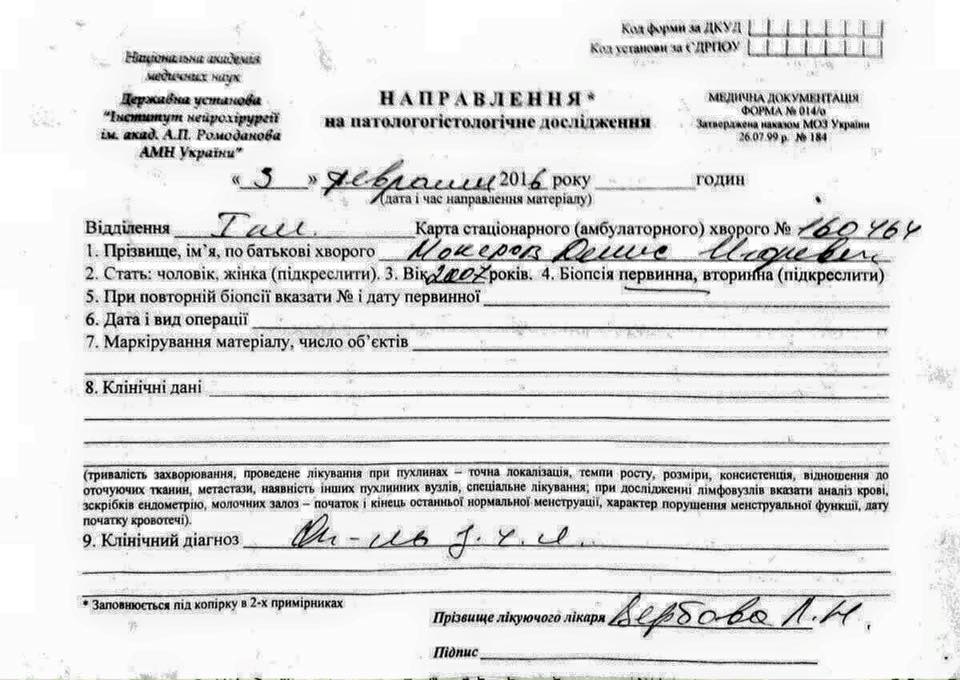 Код форми за ДКУД
Код установи за ЄДРПОУ
Національна академія
медичних наук
Державна установа
"Інститут нейрохірургії
ім. акад. А.П. Ромоданова
АМН України"
НАПРАВЛЕННЯ*
на патологогістологічне дослідження
МЕДИЧНА ДОКУМЕНТАЦІЯ
ФОРМА № 014/о
Затверджена наказом МОЗ України
26.07.99 р. № 184
« 3 » февраля 2016 року годин
(дата і час направлення матеріалу)
Відділення Карта стаціонарного (амбулаторного) хворого № 160464
1. Прізвище, ім’я, по батькові хворого Мокеров Денис Игоревич
2. Стать: чоловік, жінка (підкреслити). 3. Вік 2007 років. 4. Біопсія первинна, вторинна (підкреслити)
5. При повторній біопсії вказати № і дату первинної
6. Дата і вид операції
7. Маркірування матеріалу, число об’єктів
8. Клінічні дані
(тривалість захворювання, проведене лікування при пухлинах – точна локалізація, темпи росту, розміри, консистенція, відношення до
оточуючих тканин, метастази, наявність інших пухлинних вузлів, спеціальне лікування; при дослідженні лімфовузлів вказати аналіз крові,
зскрібків ендометрію, молочних залоз – початок і кінець останньої нормальної менструації, характер порушення менструальної функції, дату
початку кровотечі).
9. Клінічний діагноз Оп-ль з.ч.я.
* Заповнюється під копірку в 2-х примірниках
Прізвище лікуючого лікаря Вербова Л.Н.
Підпис